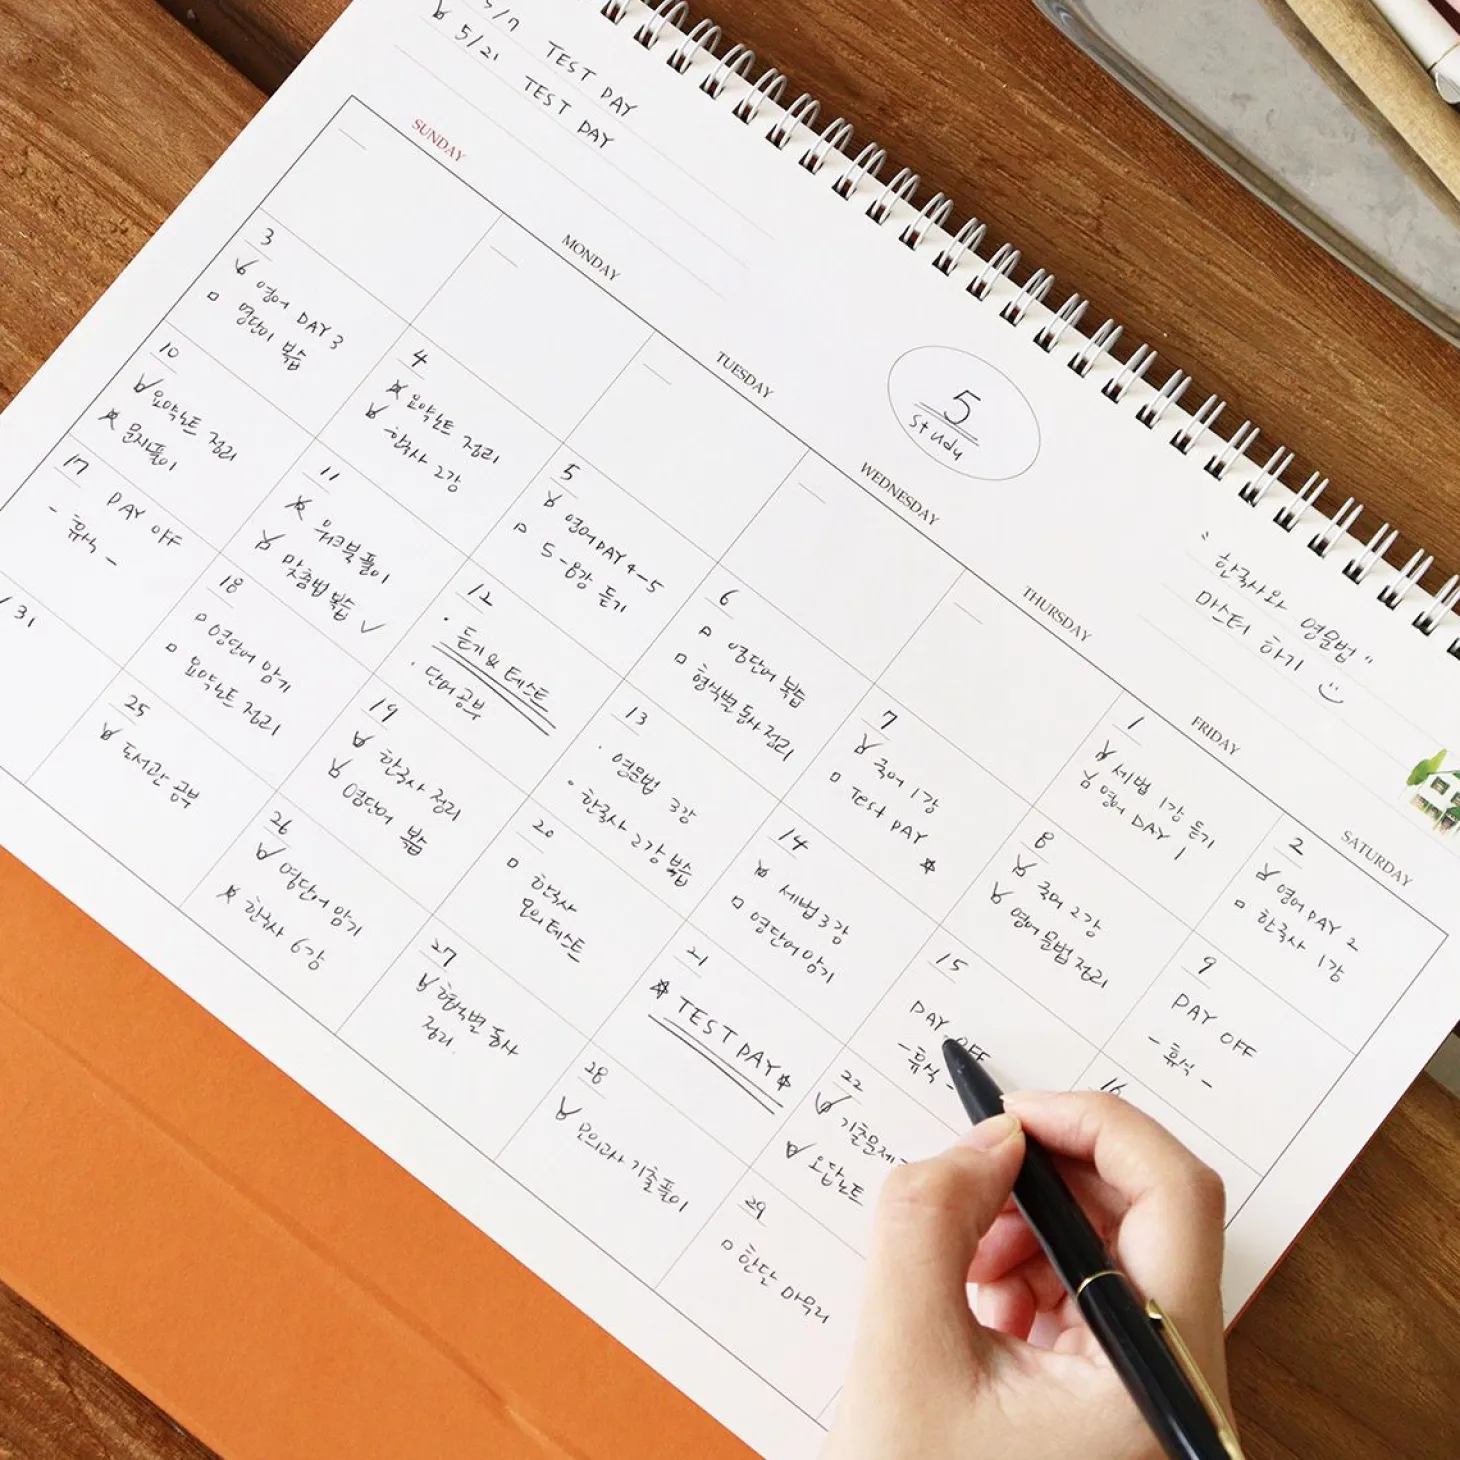 5/7 TEST DAY
5/21 TEST DAY
5
study
"한국사와 영문법"
마스터 하기
SUNDAY
MONDAY
TUESDAY
WEDNESDAY
THURSDAY
FRIDAY
SATURDAY
1
세법 1강 듣기
영어 DAY 1
2
영어 DAY 2
한국사 1강
3
영어 DAY 3
영단어 복습
4
요약노트 정리
한국사 2강
5
영어 DAY 4-5
5-8강 듣기
6
영단어 복습
형식별 동사 정리
7
국어 1강
Test DAY
8
국어 2강
영어 문법 정리
9
DAY OFF
- 휴식 -
10
요약노트 정리
문제풀이
11
워크북 풀이
맞춤법 복습
12
듣기 & 테스트
단어 공부
13
영문법 3강
한국사 2강 복습
14
세법 3강
영단어 암기
15
DAY OFF
- 휴식 -
16
17
DAY OFF
- 휴식 -
18
영단어 암기
요약노트 정리
19
한국사 정리
영단어 복습
20
한국사
모의테스트
21
TEST DAY
22
기출문제
오답노트
/ 31
25
도서관 공부
26
영단어 암기
한국사 6강
27
형식별 동사
정리.
28
모의고사 기출풀이
29
한달 마무리